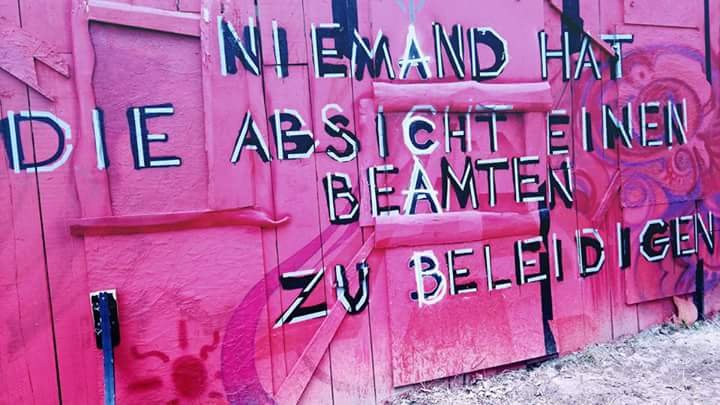 NIEMAND HAT
DIE ABSICHT EINEN
BEAMTEN
ZU BELEIDIGEN